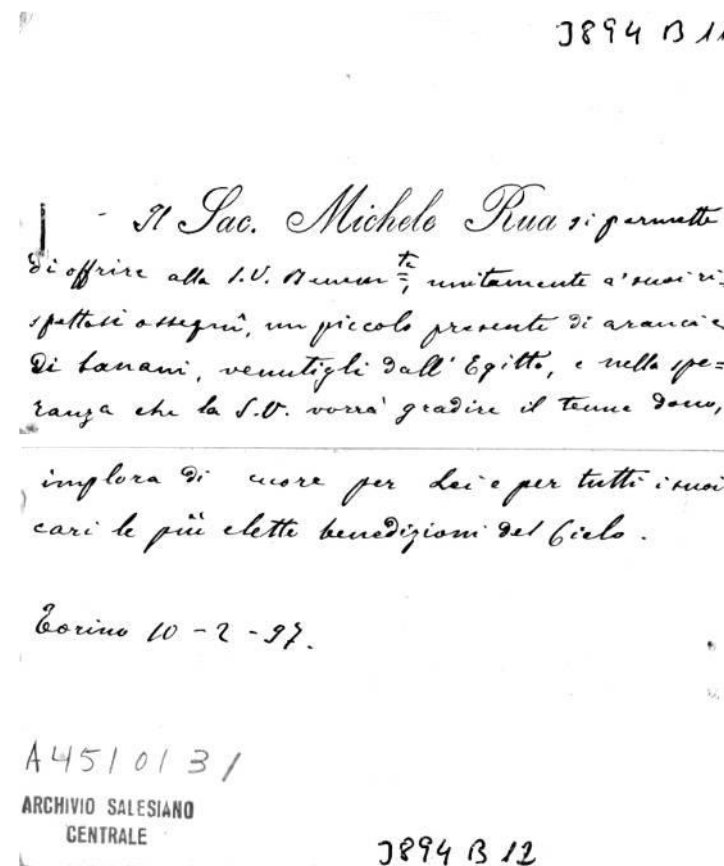 3894 B 11
Il Sac. Michele Rua si permette
di offrire alla S.V. Benem te, unitamente a' suoi ri=
spettosi ossequi, un piccolo presente di aranci e
di banani, venutigli dall' Egitto, e nella spe=
ranza che la S.V. vorrà gradire il tenue dono,
implora di cuore per Lei e per tutti i suoi
cari le più elette benedizioni del Cielo.
Torino 10 - 2 - 97.
A4510131
ARCHIVIO SALESIANO
CENTRALE
3894 B 12